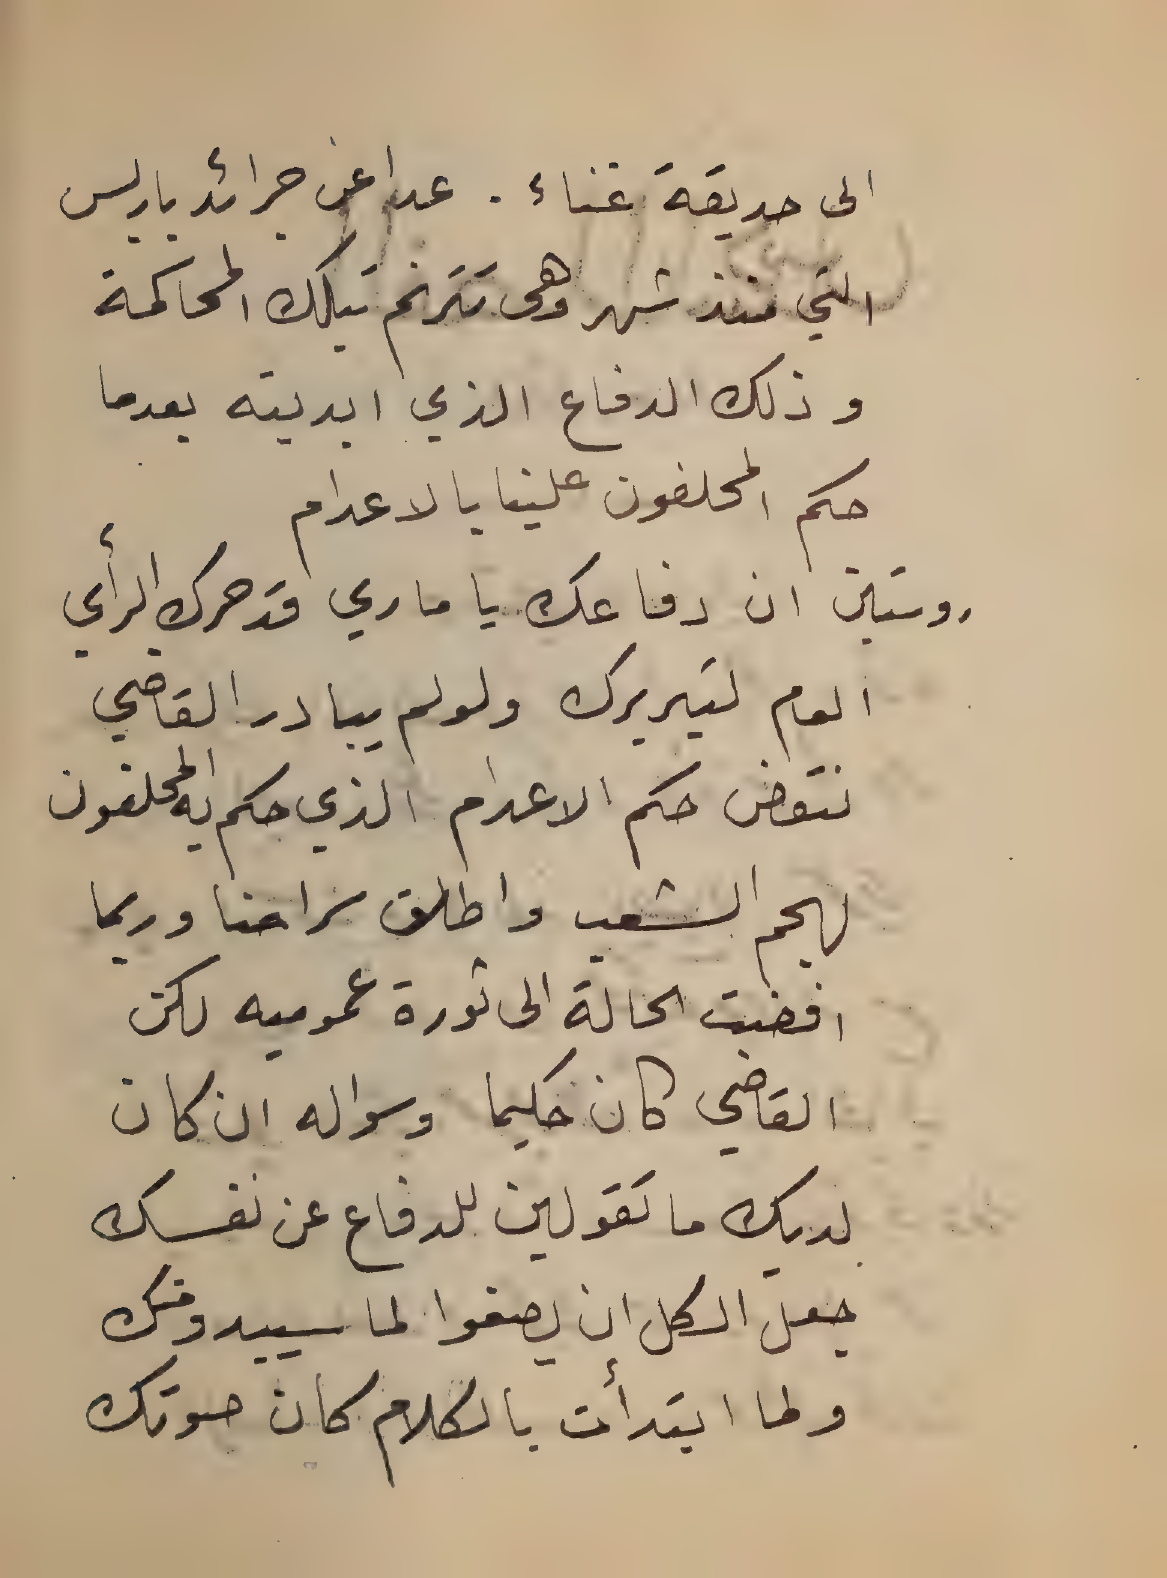 الى حديقة غناء . عدا عن جرائد باريس
التي منذ شهر وهي تترنم بتلك المحاكمة
وذلك الدفاع الذي ابديته بعدما
حكم المحلفون علينا بالاعدام
روستين ان دفاعك يا ماري قد حرك الرأي
العام لتبريرك ولو لم يبادر القاضي
نتقض حكم الاعدام الذي حكم به المحلفون
لهجم الشعب واطلق سراحنا وربما
افضت الحالة الى ثورة عموميه لكن
القاضي كان حكيما وسواله ان كان
لديك ما تقولين للدفاع عن نفسك
جعل الكل ان يصغوا لما سيبدو منك
ولما ابتدأت بالكلام كان صوتك